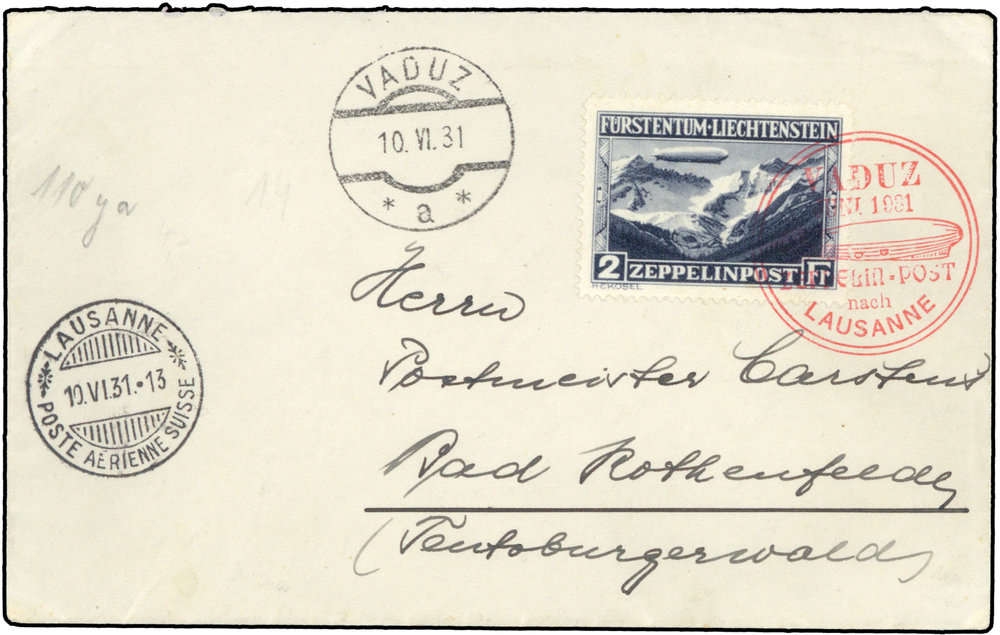 VADUZ
10. VI. 31
* a *
FÜRSTENTUM·LIECHTENSTEIN
2 ZEPPELINPOST Fr
VADUZ
1931
ZEPPELIN-POST
nach
LAUSANNE
110
14
LAUSANNE
10.VI.31.-13
POSTE AÉRIENNE SUISSE
Herrn
Postmeister Carstens
Bad Rothenfelde
(Teutoburgerwald)